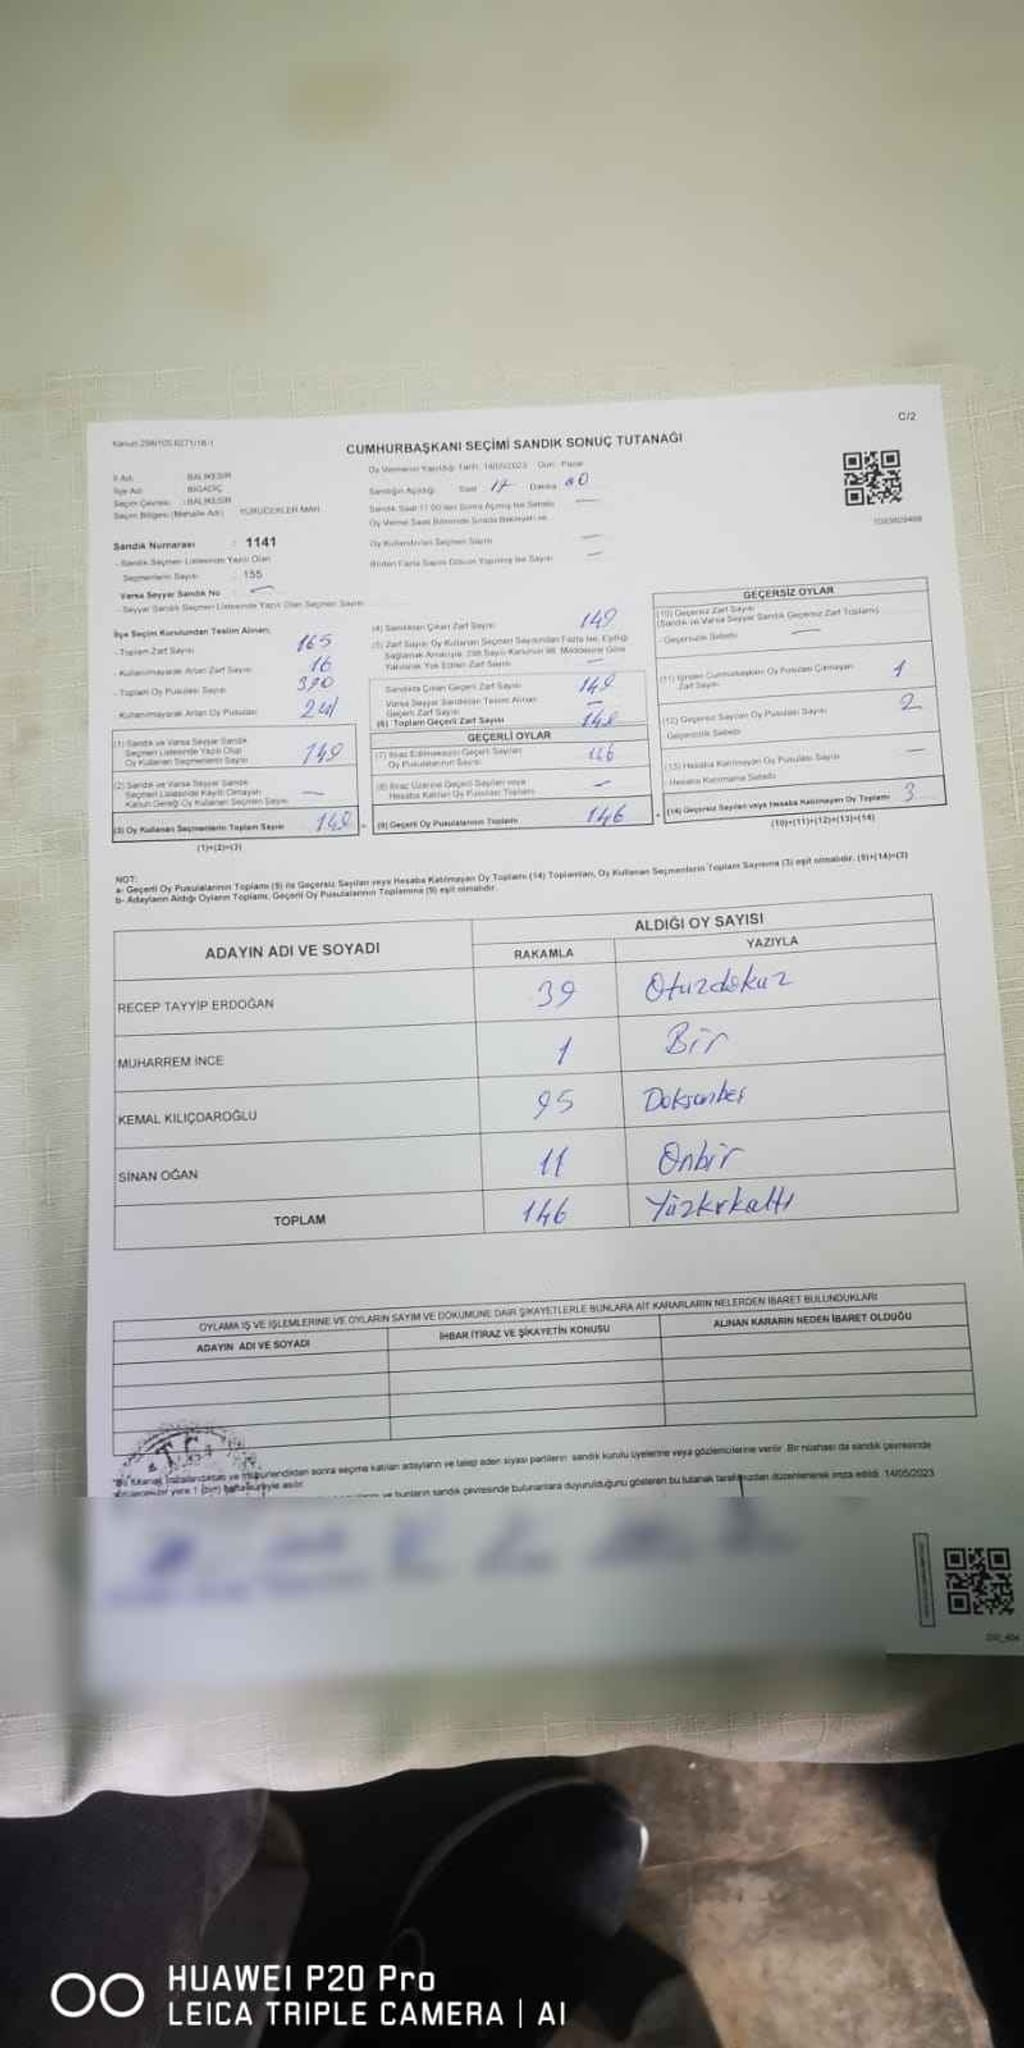 Kanun 298/105 6271/18-1
C/2
CUMHURBAŞKANI SEÇİMİ SANDIK SONUÇ TUTANAĞI
İl Adı : BALIKESİR
İlçe Adı : BİGADİÇ
Seçim Çevresi : BALIKESİR
Seçim Bölgesi (Mahalle Adı) : YÜRÜCEKLER MAH.
Oy Vermenin Yapıldığı Tarih: 14/05/2023 Gün: Pazar
Sandığın Açıldığı Saat 17 Dakika 00
Oy Kullandırılan Seçmen Sayısı —
Birden Fazla Sayım Döküm Yapılmış İse Sayısı —
Sandık Numarası : 1141
- Sandık Seçmen Listesinde Yazılı Olan
Seçmenlerin Sayısı : 155
Varsa Seyyar Sandık No —
- Seyyar Sandık Seçmen Listesinde Yazılı Olan Seçmen Sayısı
İlçe Seçim Kurulundan Teslim Alınan;
- Toplam Zarf Sayısı 165
- Kullanılmayarak Artan Zarf Sayısı 16
- Toplam Oy Pusulası Sayısı 390
- Kullanılmayarak Artan Oy Pusulası 241
(1) Sandık ve Varsa Seyyar Sandık
Seçmen Listesinde Yazılı Olup
Oy Kullanan Seçmenlerin Sayısı 149
(2) Sandık ve Varsa Seyyar Sandık
Seçmen Listesinde Kayıtlı Olmayan
Kanun Gereği Oy Kullanan Seçmen Sayısı —
(3) Oy Kullanan Seçmenlerin Toplam Sayısı 149
(1)+(2)=(3)
(4) Sandıktan Çıkan Zarf Sayısı 149
(5) Zarf Sayısı Oy Kullanan Seçmen Sayısından Fazla İse, Eşitliği
Sağlamak Amacıyla, 298 Sayılı Kanunun 98. Maddesine Göre
Yakılarak Yok Edilen Zarf Sayısı —
Sandıkta Çıkan Geçerli Zarf Sayısı 149
Varsa Seyyar Sandıktan Teslim Alınan
Geçerli Zarf Sayısı —
(6) Toplam Geçerli Zarf Sayısı 149
GEÇERLİ OYLAR
(7) İtiraz Edilmeksizin Geçerli Sayılan
Oy Pusulalarının Sayısı 146
(8) İtiraz Üzerine Geçerli Sayılan veya
Hesaba Katılan Oy Pusulası Toplamı —
(9) Geçerli Oy Pusulalarının Toplamı 146
GEÇERSİZ OYLAR
(10) Geçersiz Zarf Sayısı
(Sandık ve Varsa Seyyar Sandık Geçersiz Zarf Toplamı)
Geçersizlik Sebebi —
(11) İçinden Cumhurbaşkanı Oy Pusulası Çıkmayan
Zarf Sayısı 1
(12) Geçersiz Sayılan Oy Pusulası Sayısı 2
Geçersizlik Sebebi
(13) Hesaba Katılmayan Oy Pusulası Sayısı —
Hesaba Katılmama Sebebi
(14) Geçersiz Sayılan veya Hesaba Katılmayan Oy Toplamı 3
(10)+(11)+(12)+(13)=(14)
NOT:
a- Geçerli Oy Pusulalarının Toplamı (9) ile Geçersiz Sayılan veya Hesaba Katılmayan Oy Toplamı (14) Toplamları, Oy Kullanan Seçmenlerin Toplam Sayısına (3) eşit olmalıdır. (9)+(14)=(3)
b- Adayların Aldığı Oyların Toplamı, Geçerli Oy Pusulalarının Toplamına (9) eşit olmalıdır.
ADAYIN ADI VE SOYADI
ALDIĞI OY SAYISI
RAKAMLA YAZIYLA
RECEP TAYYİP ERDOĞAN 39 Otuzdokuz
MUHARREM İNCE 1 Bir
KEMAL KILIÇDAROĞLU 95 Doksanbeş
SİNAN OĞAN 11 Onbir
TOPLAM 146 Yüzkırkaltı
OYLAMA İŞ VE İŞLEMLERİNE VE OYLARIN SAYIM VE DÖKÜMÜNE DAİR ŞİKAYETLERLE BUNLARA AİT KARARLARIN NELERDEN İBARET BULUNDUKLARI
ADAYIN ADI VE SOYADI İHBAR İTİRAZ VE ŞİKAYETİN KONUSU ALINAN KARARIN NEDEN İBARET OLDUĞU
T.C.
sonra seçime katılan adayların ve talep eden siyasi partilerin sandık kurulu üyelerine veya gözlemcilerine verilir. Bir nüshası da sandık çevresinde
ve bunların sandık çevresinde bulunanlara duyurulduğunu gösteren bu tutanak tarafımızdan düzenlenerek imza edildi. 14/05/2023
HUAWEI P20 Pro
LEICA TRIPLE CAMERA | AI